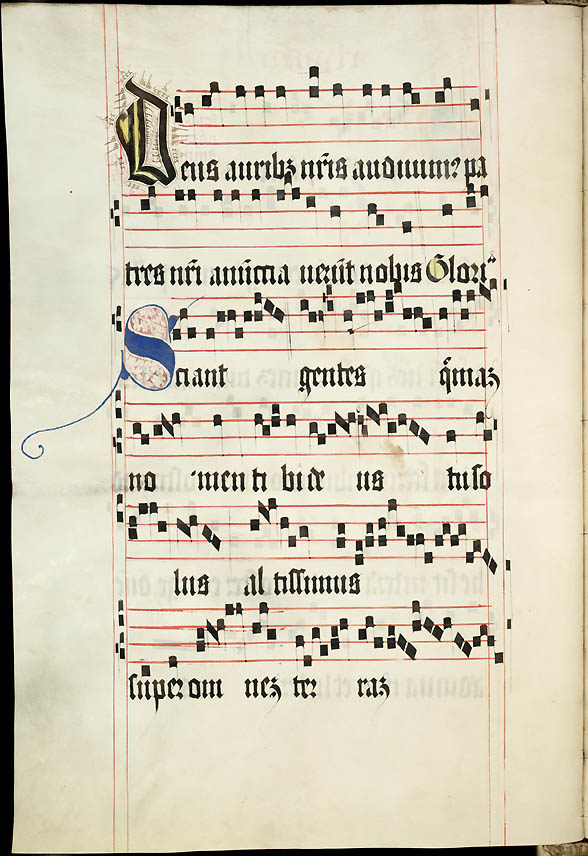 Deus auribꝫ nr̄is audiuimꝰ pa
tres nr̄i anūccia uerūt nobis Glori
Sciant gentes qm̄aꝫ
no men ti bi de us tu so
lus al tissimus
super om neꝫ ter raꝫ